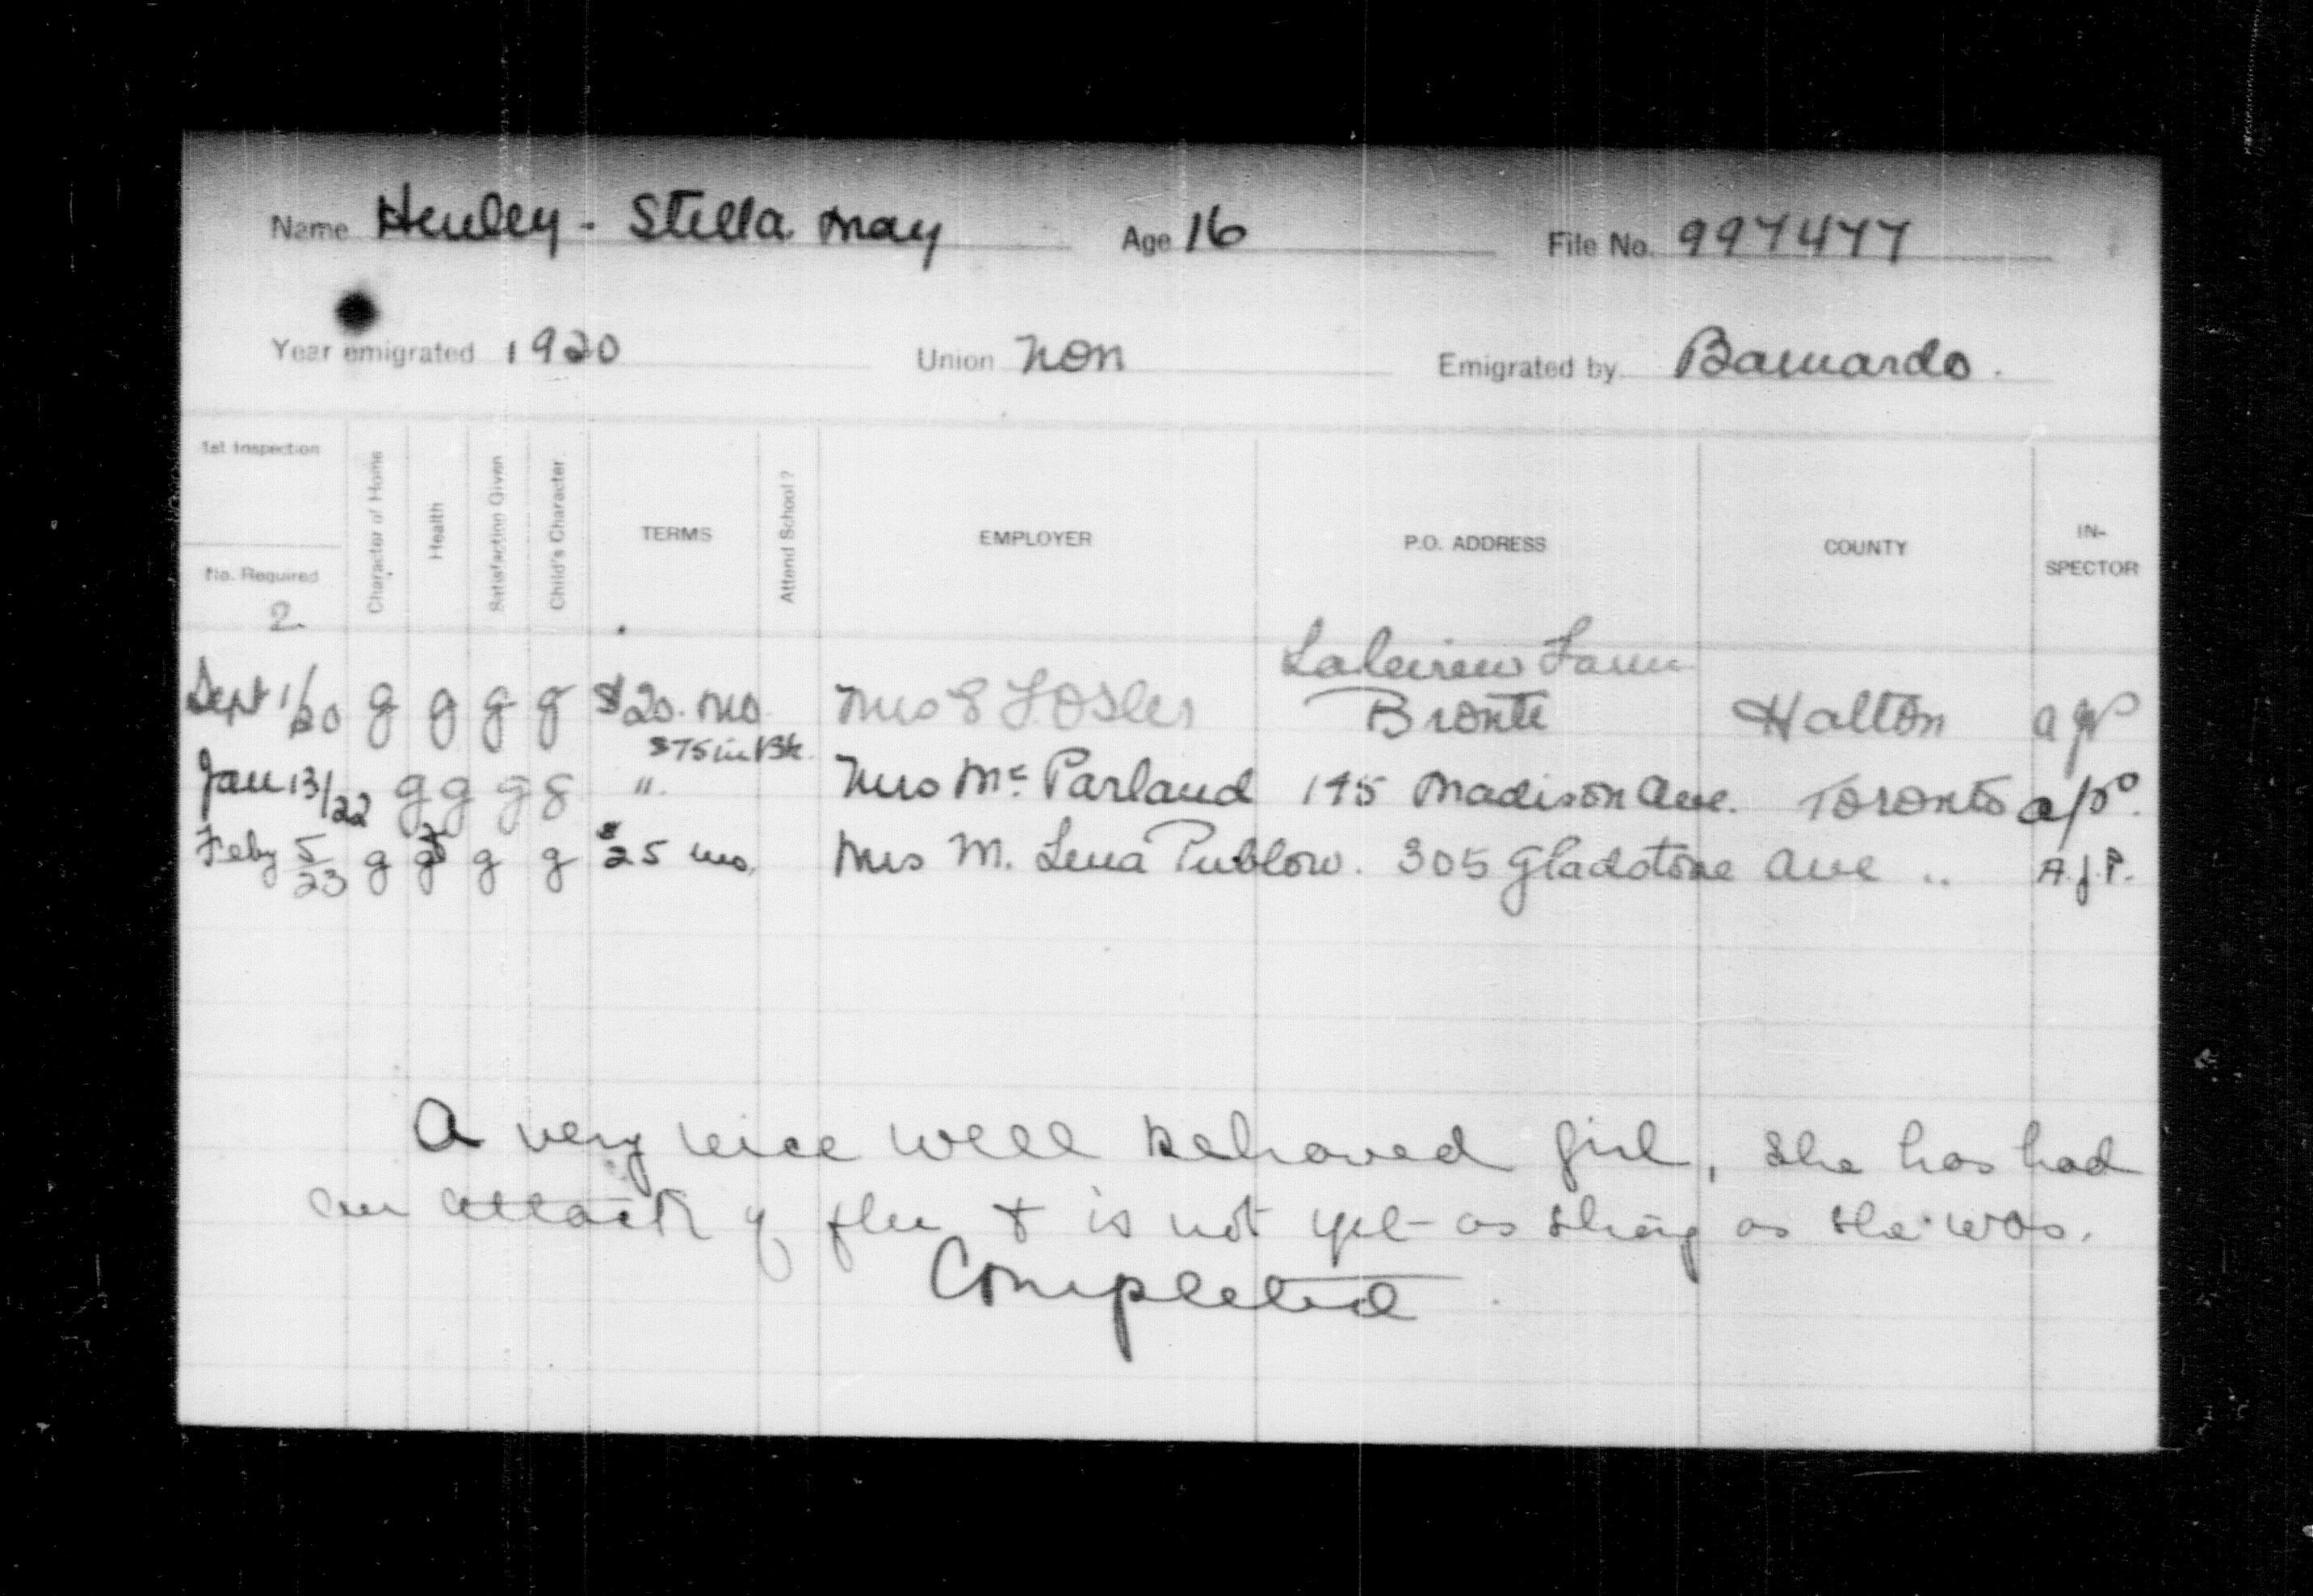 Name Henley - Stella May Age 16 File No. 997477
Year emigrated 1920 Union Non Emigrated by Barnardo.
1st Inspection
No. Required
2
Character of Home
Health
Satisfaction Given
Child's Character
TERMS
Attend School?
EMPLOYER
P.O. ADDRESS
COUNTY
IN-
SPECTOR
Lakeview Farm
Sept 1/20 g g g g $20. mo. Mrs E F Osler Bronte Halton
$75 in Bk.
Jan 13/22 g g g g " Mrs Mc Parland 145 Madison Ave. Toronto
Feby 5/23 g g g g $25 mo. Mrs M. Lena Publow. 305 Gladstone Ave " A.J.P.
A very nice well behaved girl, she has had
an attack of flu & is not yet as strong as she was.
Completed